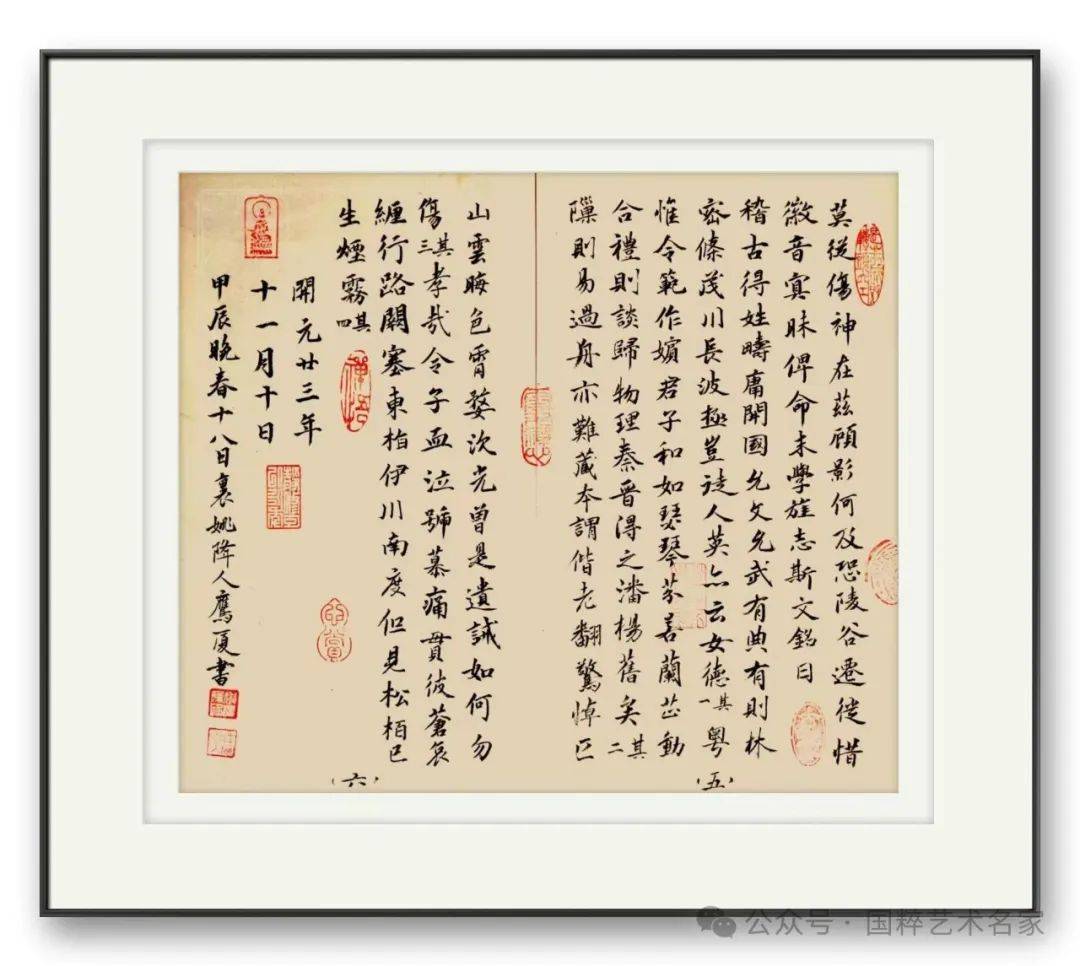 莫從傷神在茲顧影何及恐陵谷遷徙惜
徽音寘昧俾命末學旌志斯文銘曰
稽古得姓疇庸開國允文允武有典有則林
密條茂川長波極豈徒人英亦云女德其一粵
惟令範作嬪君子和如瑟琴芬若蘭芷動
合禮則談歸物理秦晉得之潘楊舊矣其二
隟則易過舟亦難藏本謂偕老翻驚悼亡
（五）
山雲晦色霄婺次光曾是遺誡如何勿
傷其三孝哉令子血泣號慕痛貫彼蒼哀
纏行路闕塞東柏伊川南度但見松栢已
生煙霧其四
開元廿三年
十一月十日
甲辰晚春十八日襄姚降人鷹厦書
（六）
公众号·国粹艺术名家